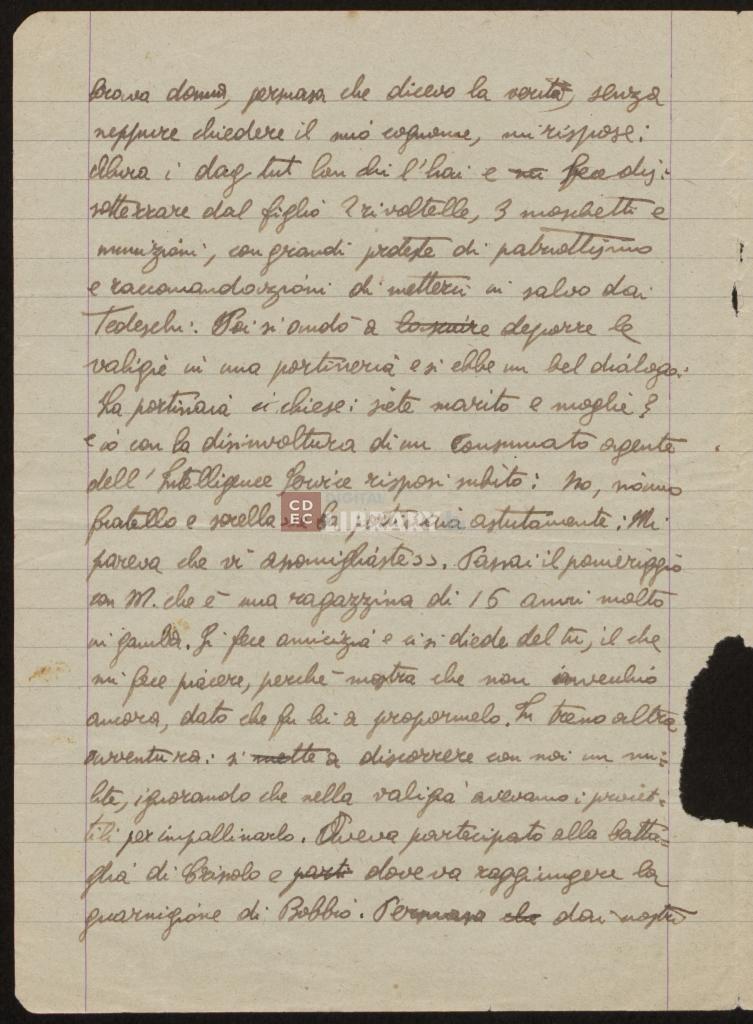 brava donna, persuasa che dicevo la verità, senza
neppure chiedere il mio cognome, mi rispose:
Alura i dag tut lon chi l'hai e fece dis:
sotterrare dal figlio 2 rivoltelle, 3 moschetti e
munizioni, con grandi proteste di patriottismo
e raccomandazioni di metterci in salvo dai
Tedeschi. Poi si andò a deporre le
valigie in una portineria e si ebbe un bel dialogo:
La portinaia ci chiese: siete marito e moglie?
e io con la disinvoltura di un consumato agente
dell'Intelligence Service risposi subito: No, siamo
fratello e sorella la portinaia astutamente: Mi
pareva che vi assomigliaste>>. Passai il pomeriggio
con M. che è una ragazzina di 16 anni molto
in gamba. Si fece amicizia e ci si diede del tu, il che
mi fece piacere, perché mostra che non invecchio
ancora, dato che fu lei a propormelo. In treno altra
avventura: si mette a discorrere con noi un mi=
lite, ignorando che nella valigia avevamo i proiet=
tili per impallinarlo. Aveva partecipato alla batta=
glia di e doveva raggiungere la
guarnigione di Bobbio. Persuaso dai nostri
CDEC DIGITAL LIBRARY